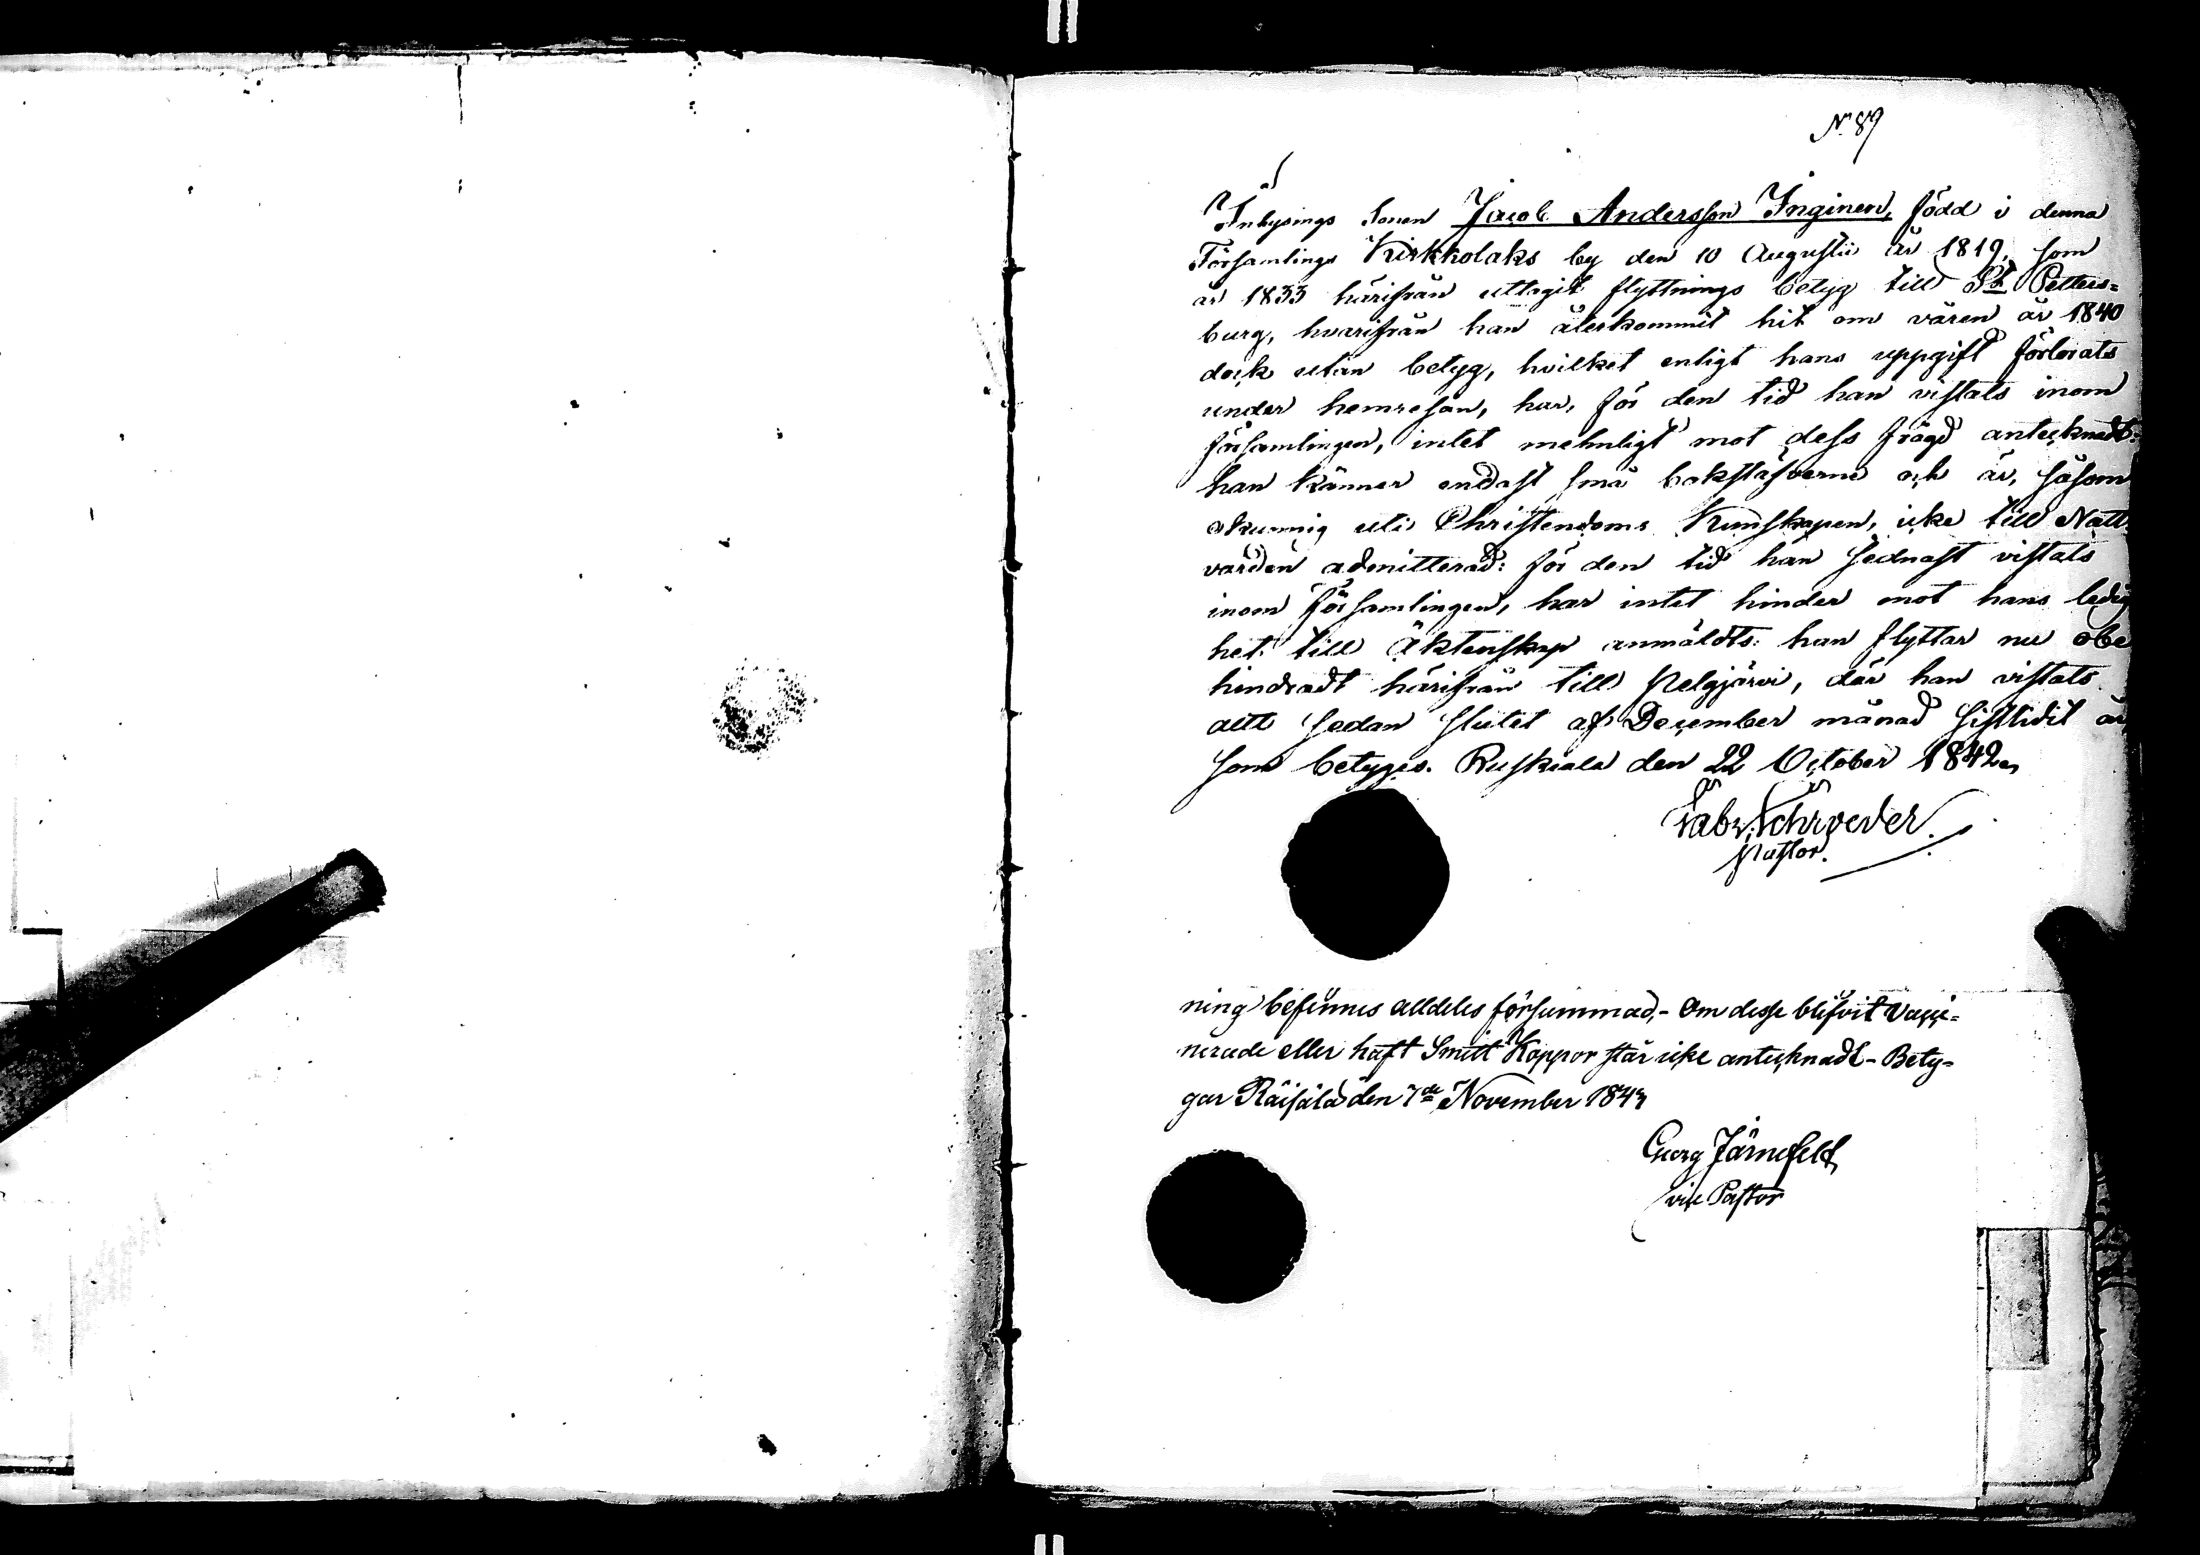 N:89
Inhysings Sonen Jacob Andersson Inginen, född i denna
Församlings Kirkkolaks by den 10 Augustii år 1819, som
år 1833 härifrån uttagit flyttnings betyg till St Petters=
burg, hvarifrån han återkommit hit om våren år 1840
dock utan betyg, hvilket enligt hans uppgift förlorats
under hemresan, har, för den tid han vistats inom
församlingen, intet mehnligt mot dess frägd antecknadt:
han känner endast små bokstäfverne och är, såsom
okunnig uti Christendoms Kunskapen, icke till Natt
varden admitterad: för den tid han sednast vistats
inom församlingen, har intet hinder mot hans ledig
het till Äktenskap anmäldts: han flyttar nu obe
hindradt härifrån till Pelgjärvi, där han vistats
allt sedan slutet af December månad sistlidit år
som betyges. Ruskiala den 22 October 1842.
Fabr. Schroeder
Pastor.
ning befinnes alldeles försummad,- Om desse blifvit Vacci=
nerade eller haft Smitt Koppor står icke antecknadt - Bety=
gar Räisälä den 7de November 1843
Georg Järnefelt
vice Pastor